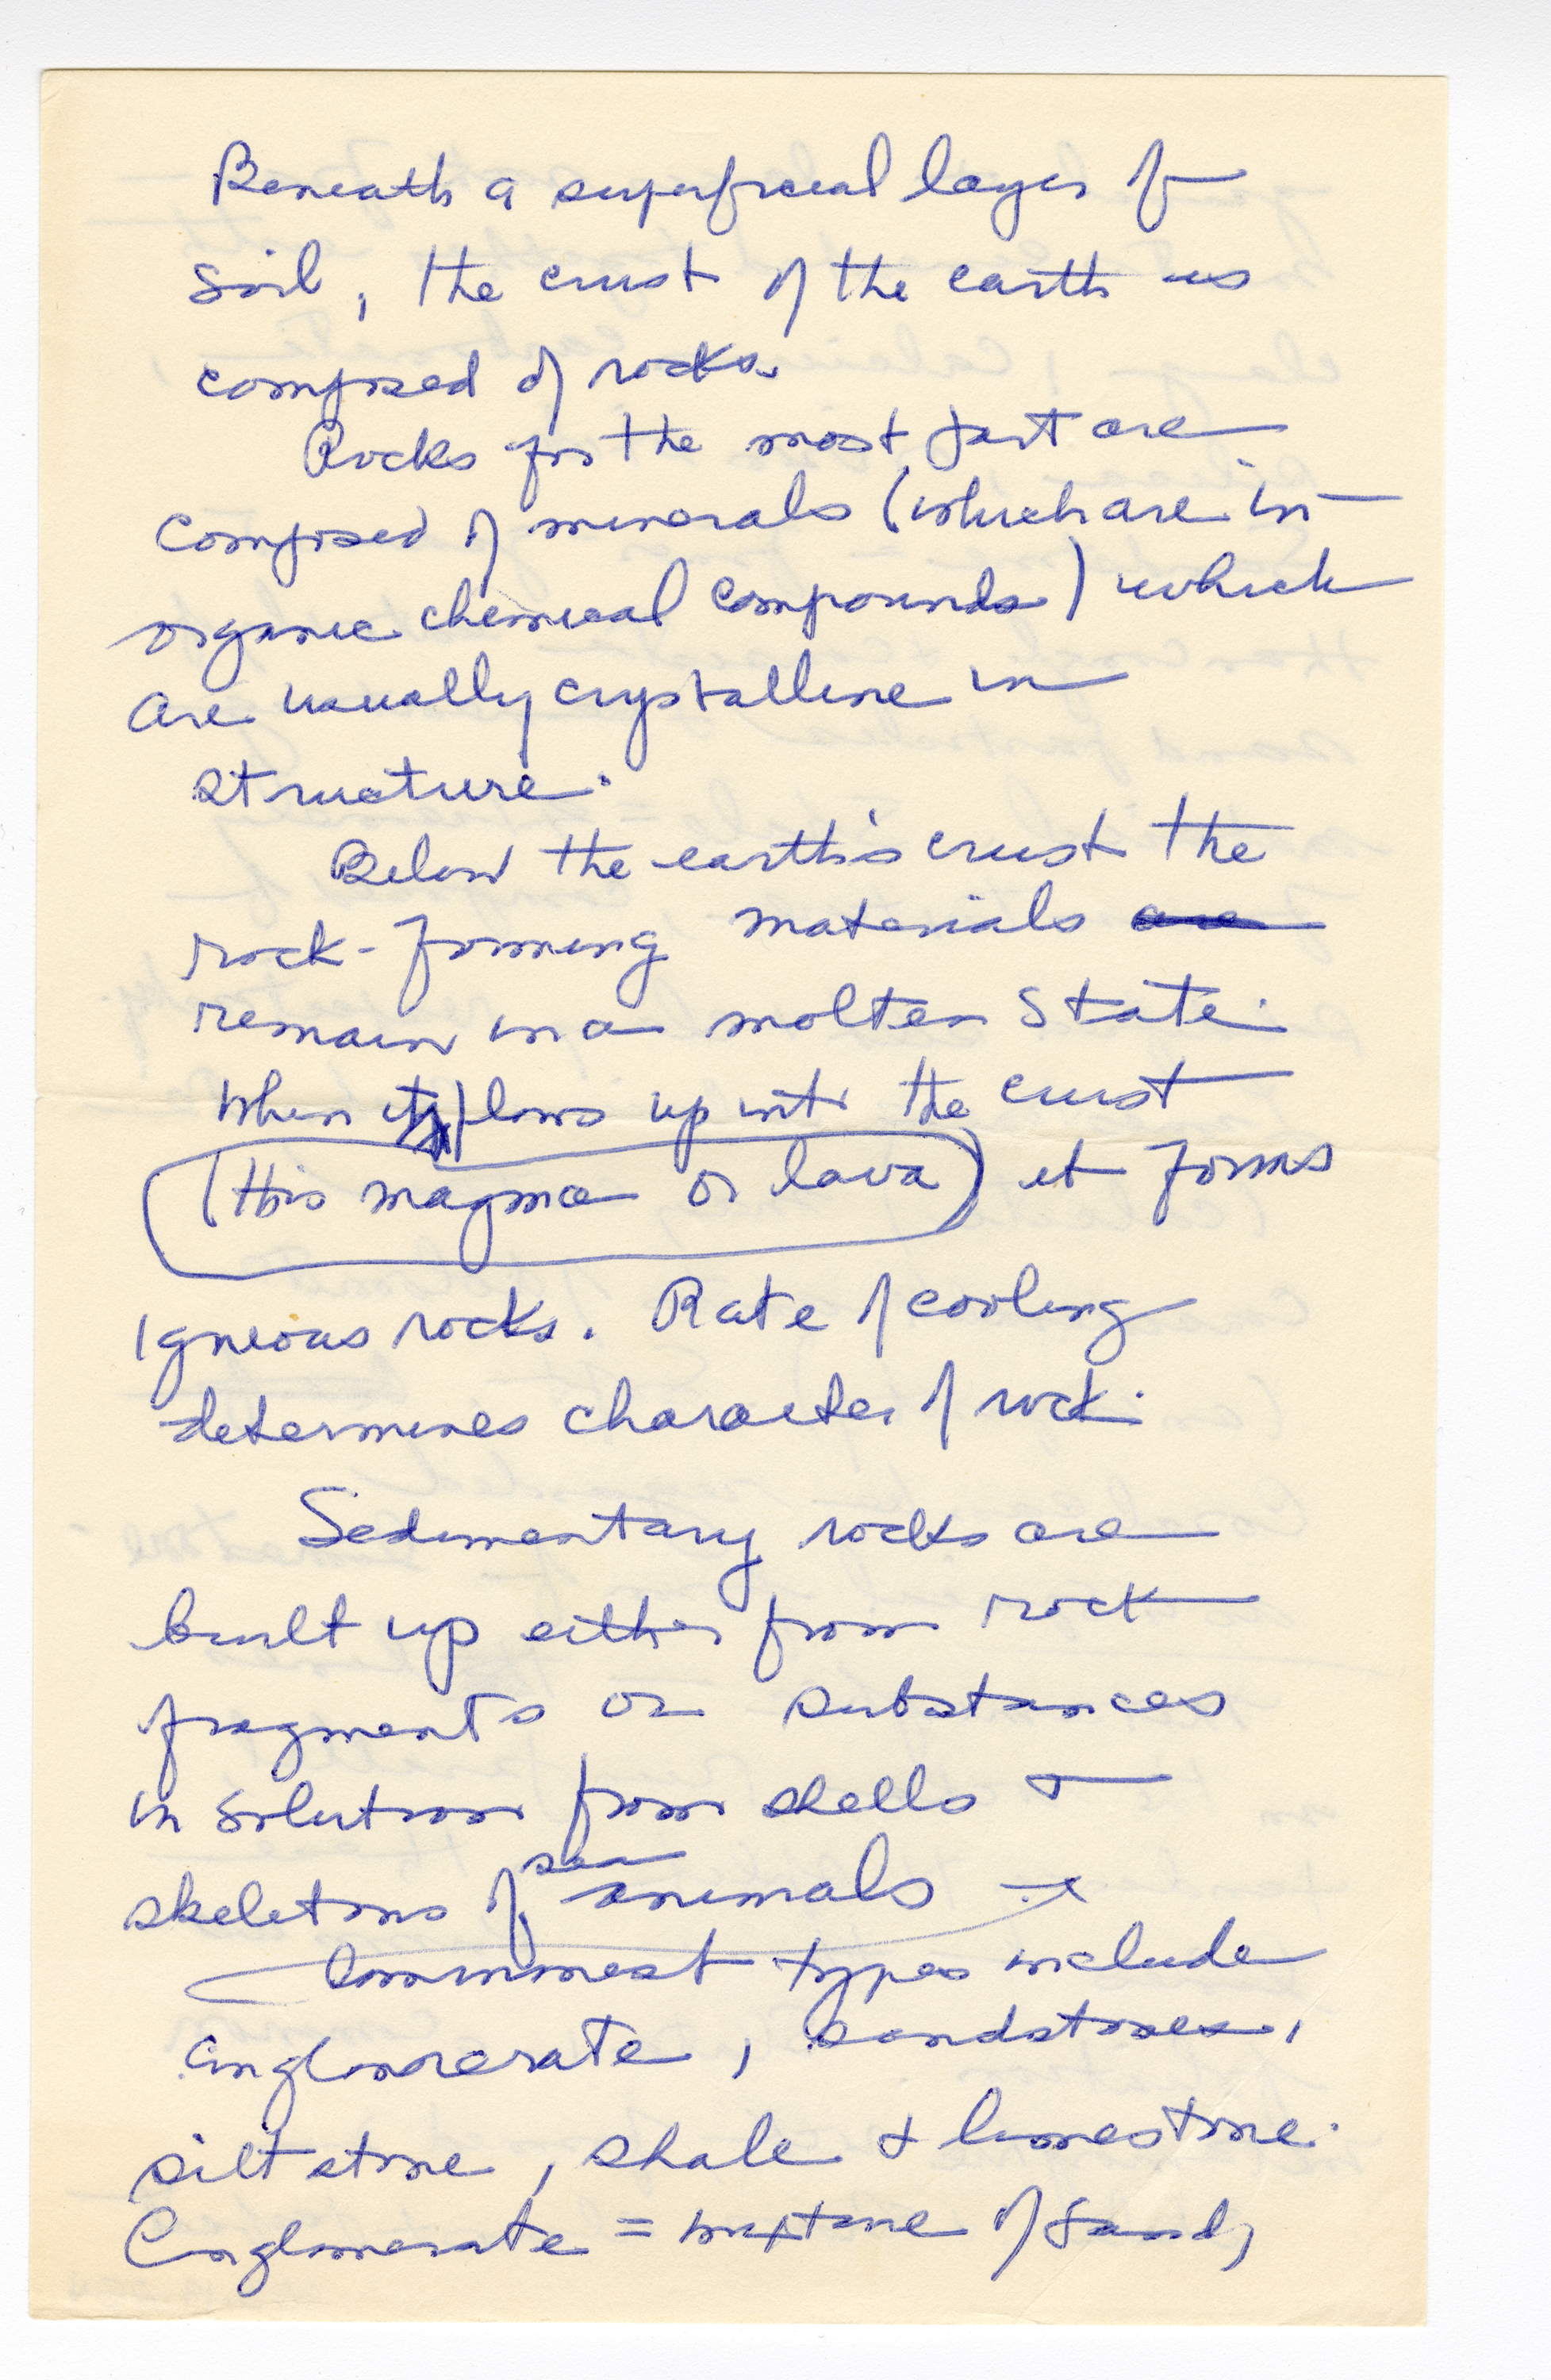 Beneath a superficial layer of
soil, the crust of the earth is
composed of rocks.
Rocks for the most part are
composed of minerals (which are in-
organic chemical compounds) which
are usually crystalline in
structure.
Below the earth's crust the
rock-forming materials are
remain in a molten state.
When it flows up into the crust
(this magma or lava) it forms
igneous rocks. Rate of cooling
determines character of rock.
Sedimentary rocks are
built up either from rock
fragments or substances
in solution from shells &
skeletons of sea animals
Commonest types include
conglomerate, sandstones,
siltstone, shale & limestone.
Conglomerate = mixture of sand,